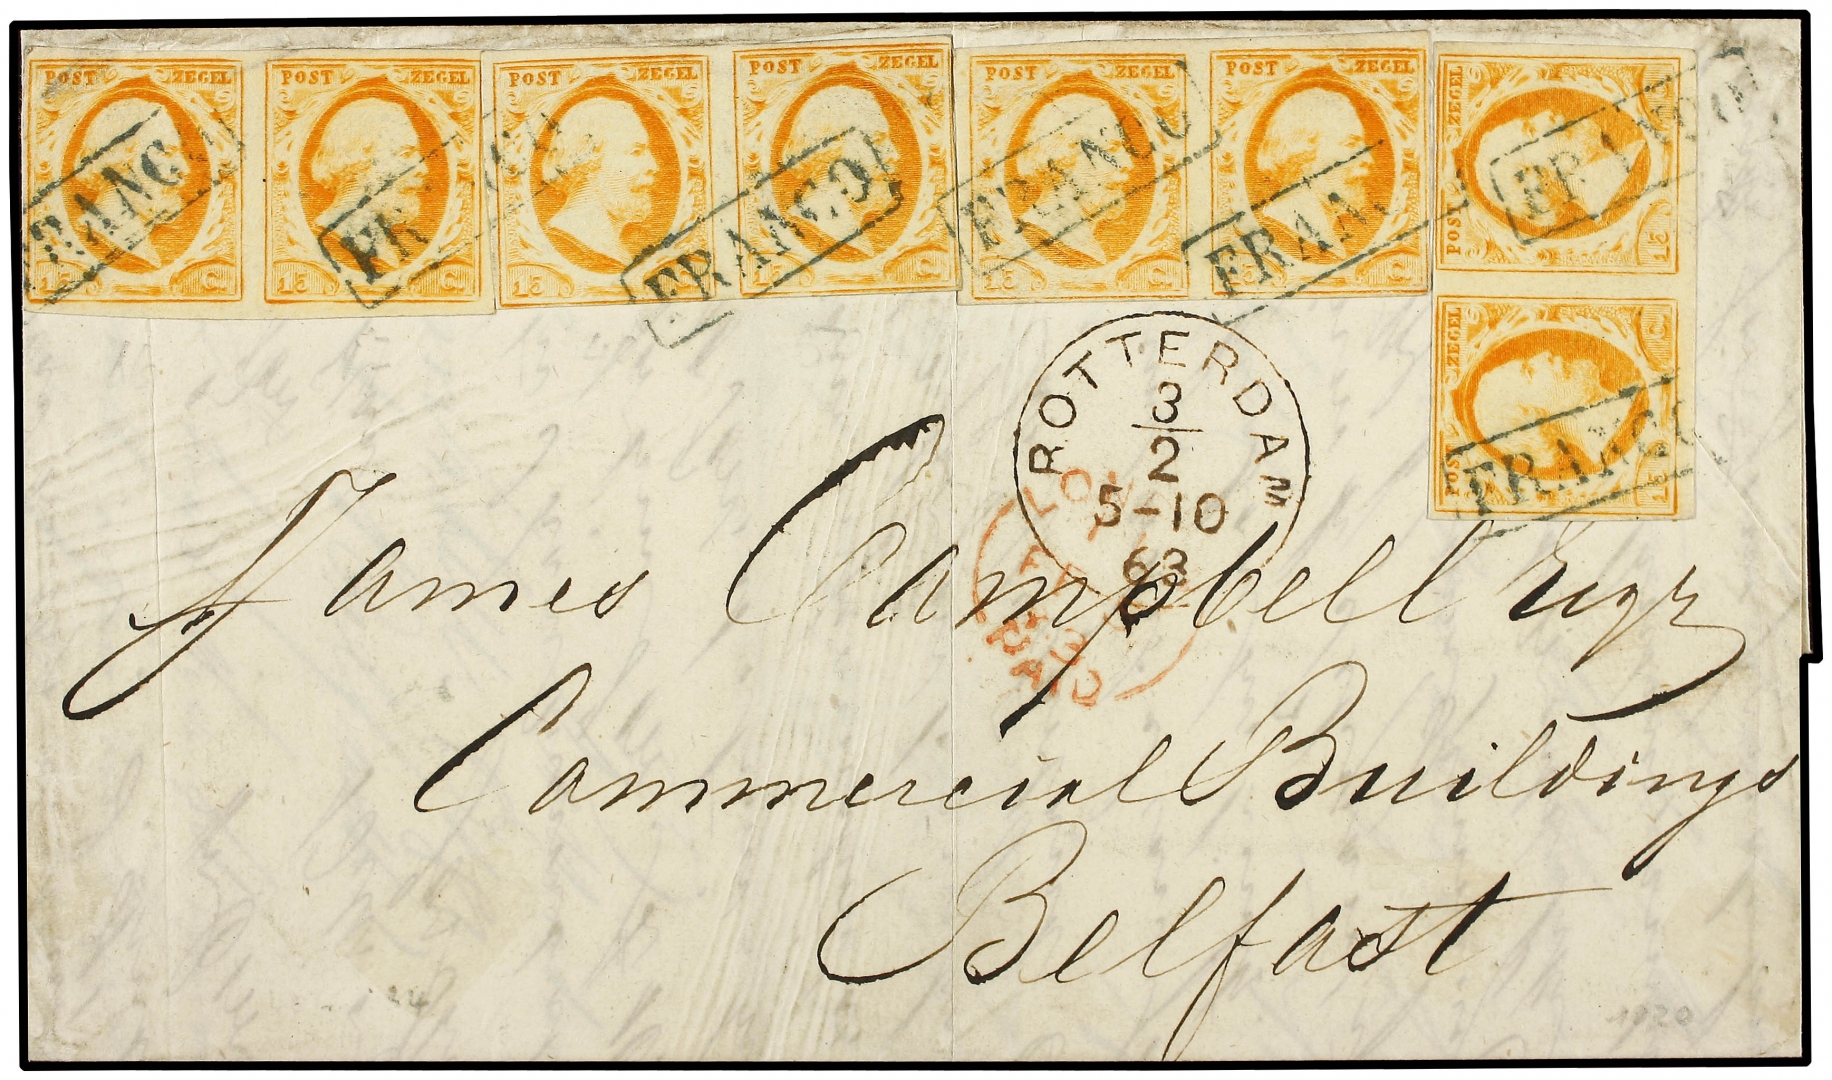 POST ZEGEL POST ZEGEL POST ZEGEL POST ZEGEL POST ZEGEL POST ZEGEL POST ZEGEL
FRANCO FRANCO FRANCO FRANCO FRANCO FRANCO
15 C. 15 15 C. 15 C. 15 C. 15 C.
POST ZEGEL
15 C.
FRANCO
ROTTERDAM
3
2
5-10
63
LON
PAID
James Campbell Esqr
Commercial Buildings
Belfast
1920